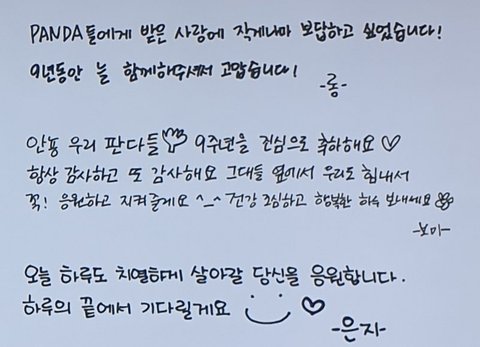 PANDA들에게 받은 사랑에 작게나마 보답하고 싶었습니다!
9년동안 늘 함께해주셔서 고맙습니다!
-롱-
안뇽 우리 판다들 9주년을 진심으로 축하해요 ♡
항상 감사하고 또 감사해요 그대들 옆에서 우리도 힘내서
꼭! 응원하고 지켜줄게요 ^_^ 건강 조심하고 행복한 하루 보내세요
-보미-
오늘 하루도 치열하게 살아갈 당신을 응원합니다.
하루의 끝에서 기다릴게요 ♡
-은지-